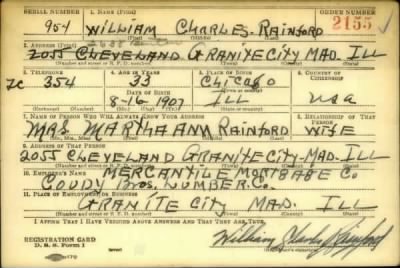 SERIAL NUMBER 1. NAME (Print) ORDER NUMBER
954 WILLIAM CHARLES RAINFORD 2155
(First) (Middle) (Last)
2. ADDRESS (Print)
2055 CLEVELAND GRANITE CITY MAD. ILL
(Number and street or R. F. D. number) (Town) (County) (State)
3. TELEPHONE 4. AGE IN YEARS 5. PLACE OF BIRTH 6. COUNTRY OF CITIZENSHIP
354 33 CHICAGO
DATE OF BIRTH
8-16-1907 ILL USA
7. NAME OF PERSON WHO WILL ALWAYS KNOW YOUR ADDRESS 8. RELATIONSHIP OF THAT PERSON
MRS. MARTHA ANN RAINFORD WIFE
9. ADDRESS OF THAT PERSON
2055 CLEVELAND GRANITE CITY-MAD. ILL
(Number and street or R. F. D. number) (Town) (County) (State)
10. EMPLOYER'S NAME MERCANTILE MORTGAGE CO
BROS. LUMBER. CO.
11. PLACE OF EMPLOYMENT OR BUSINESS
GRANITE CITY MAD. ILL
(Number and street or R. F. D. number) (Town) (County) (State)
I AFFIRM THAT I HAVE VERIFIED ABOVE ANSWERS AND THAT THEY ARE TRUE.
REGISTRATION CARD
D. S. S. Form 1 William Charles Rainford